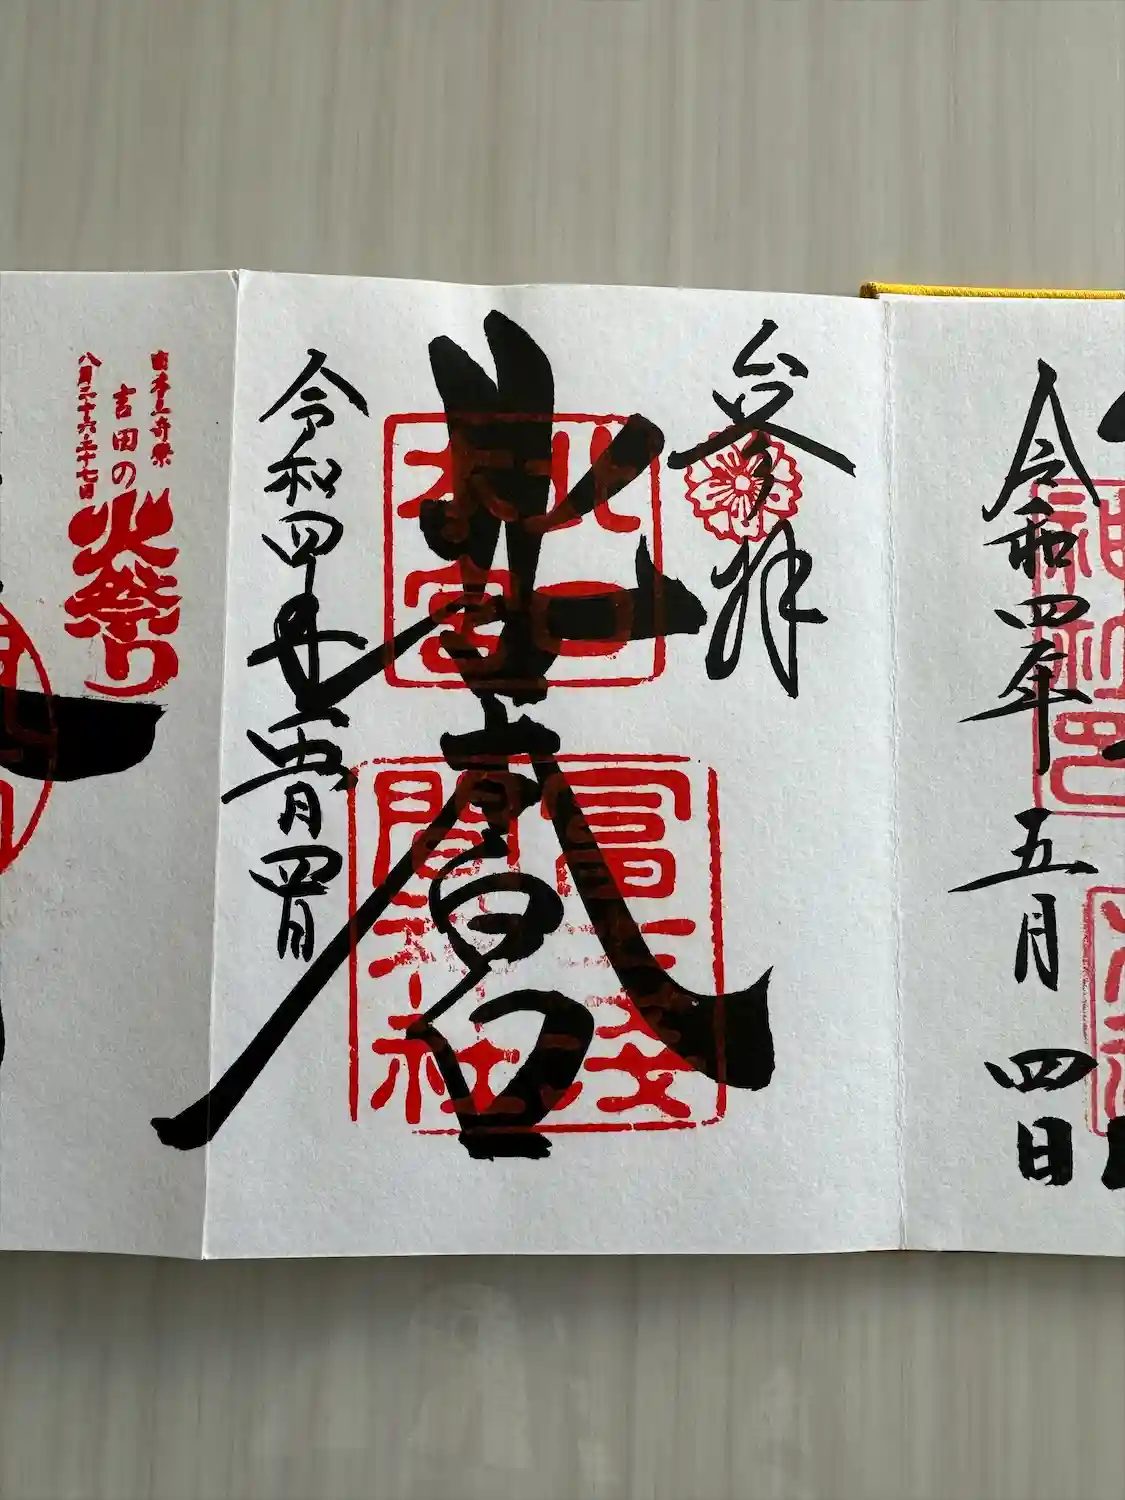 令和四年 五月 四日
参拝
北口本宮
北口
本宮
冨士浅
間神社
令和四年五月四日
日本三奇祭
吉田の火祭り
八月二十六・二十七日